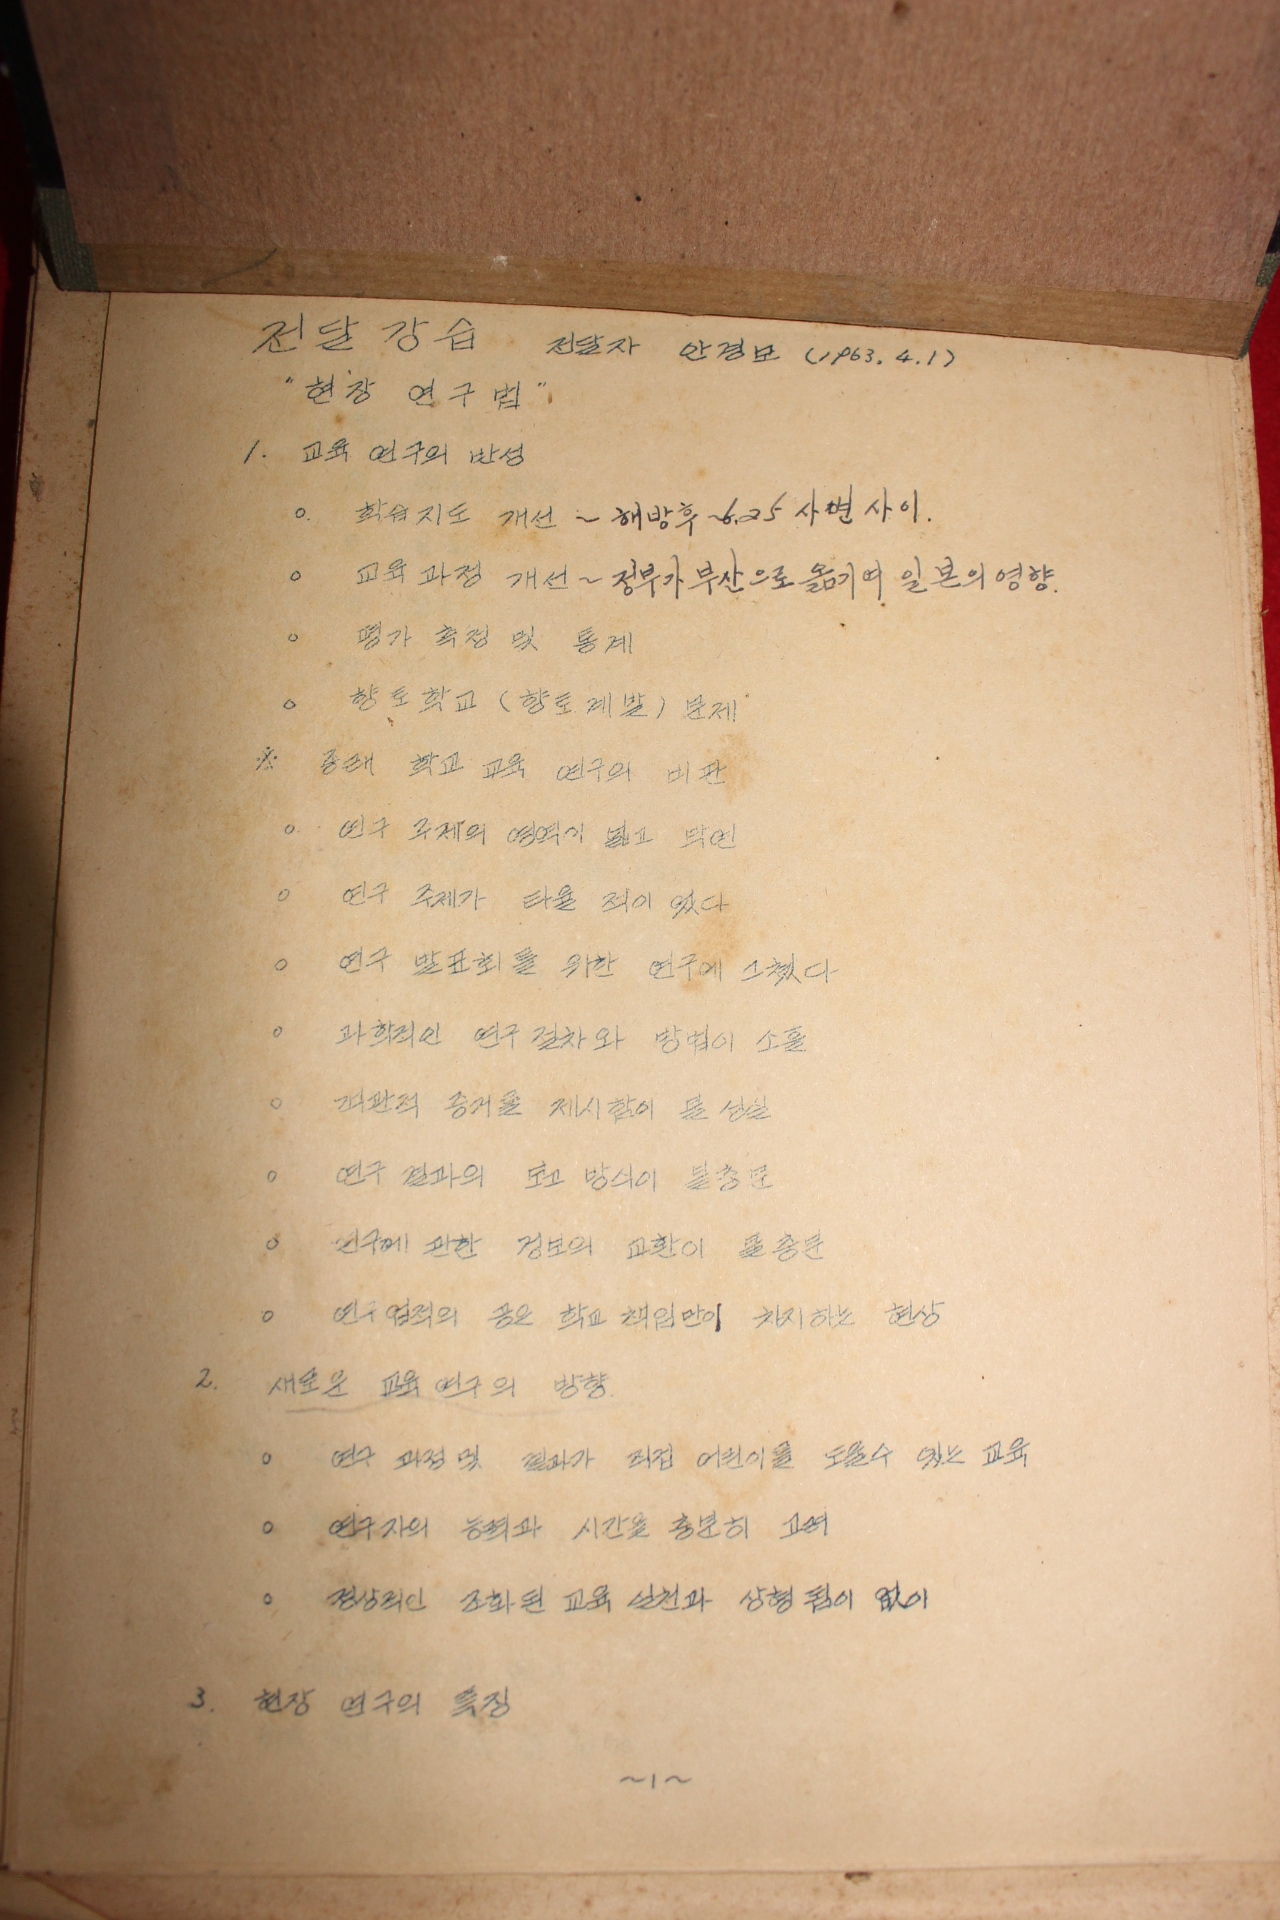 전달강습 전달자 안경모 (1963. 4. 1)
"현장 연구법"
1. 교육 연구의 반성
○. 학습지도 개선 ~ 해방후 ~ 6.25 사변 사이.
○ 교육과정 개선 ~ 정부가 부산으로 옮기여 일본의 영향.
○ 평가 측정 및 통계
○ 향토학교 (향토계발) 문제
※ 종래 학교 교육 연구의 비판
○. 연구 주제의 영역이 넓고 막연
○ 연구 주제가 타율적이 었다
○ 연구 발표회를 위한 연구에 그쳤다
○ 과학적인 연구 절차와 방법이 소홀
○ 객관적 증거를 제시함이 불성실
○ 연구 결과의 보고 방식이 불충분
○ 연구에 관한 정보의 교환이 불충분
○ 연구업적의 공은 학교 책임만이 차지하는 현상
2. 새로운 교육연구의 방향.
○ 연구 과정 및 결과가 직접 어린이를 도울수 있는 교육
○ 연구자의 능력과 시간을 충분히 고려
○ 정상적인 조화된 교육 실천과 상형됨이 없이
3. 현장 연구의 특징
~1~